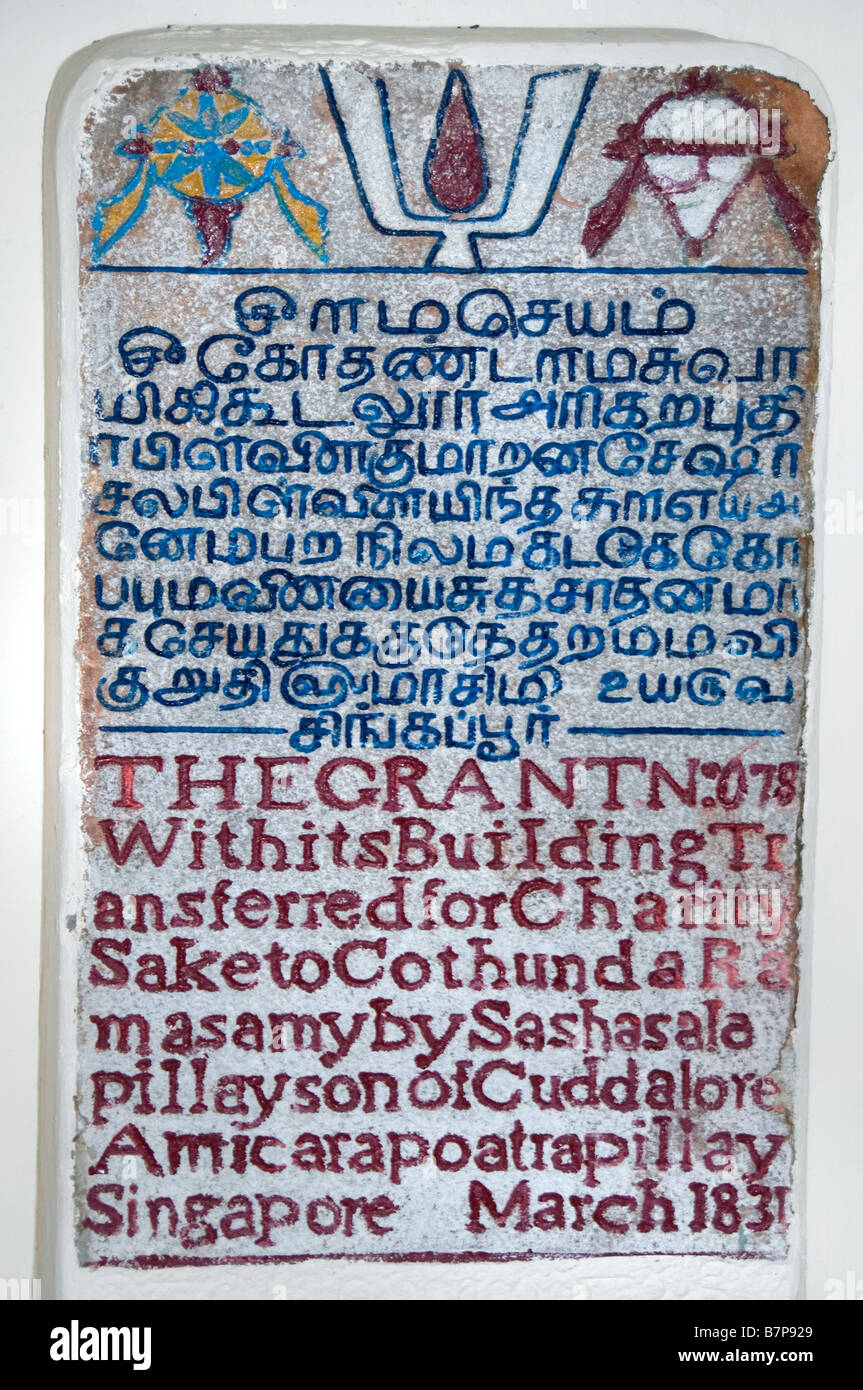 ௳ ளமசெயம்
௳ கோதண்டளமசுவா
மிகிகூடலூர் அரிகறபுதி
ர பிள்வளகுமாறனசேஷா
சலபிள்வளயிந்த
னேமபுற நிலமகடகேகோ
பபுமவிணயைசுதசாதனமா
கசெயதுககுடுதேதறமமவி
குறுதிமாசிமீ உயருவ
சிங்கப்பூர்
THEGRANTN:678
WithitsBuildingTr
ansferredforCharity
SaketoCothundaRa
masamybySashasala
pillaysonofCuddalore
Amicarapoatrapillay
Singapore March1831
alamy
Image ID: B7P929
www.alamy.com